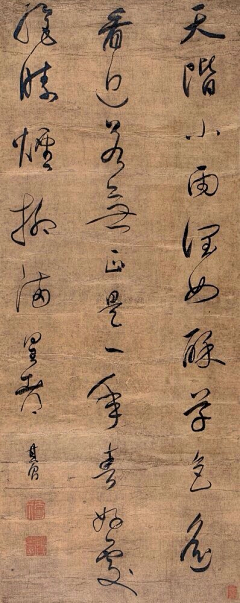 天階小雨潤如酥草色遙
看近却無正是一年春好處
絕勝煙柳滿皇都 其昌